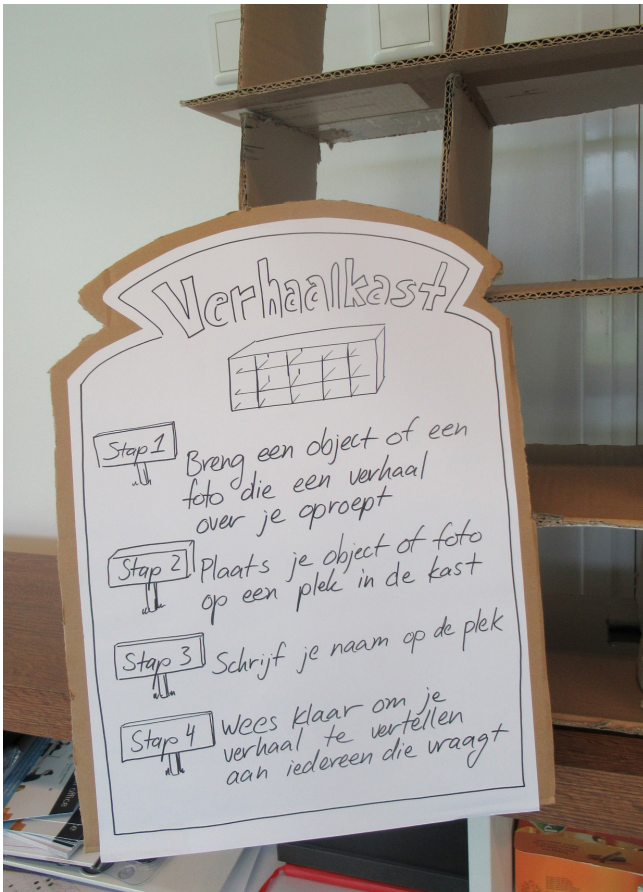 Verhaalkast
Stap 1
Breng een object of een
foto die een verhaal
over je oproept
Stap 2
Plaats je object of foto
op een plek in de kast
Stap 3
Schrijf je naam op de plek
Stap 4
Wees klaar om je
verhaal te vertellen
aan iedereen die vraagt